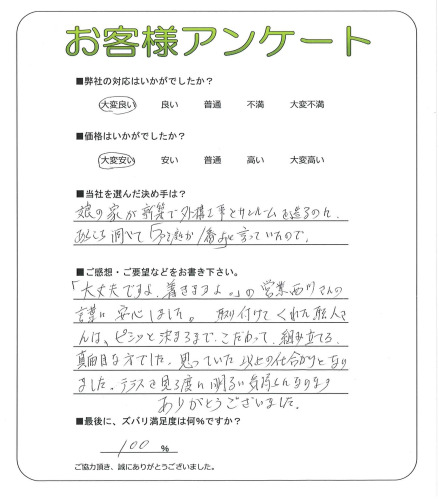 お客様アンケート
■弊社の対応はいかがでしたか？
大変良い 良い 普通 不満 大変不満
■価格はいかがでしたか？
大変安い 安い 普通 高い 大変高い
■当社を選んだ決め手は？
娘の家が新築で外構工事とサンルームを造るのに、
調べて「 が1番よ」と言っていたので。
■ご感想・ご要望などをお書き下さい。
「大丈夫ですよ、着きますよ。」の営業西川さんの
言葉に安心しました。取り付けてくれた職人さ
んは、ピシッと決まるまで、こだわって、組み立てる
真面目な方でした。思っていた以上の仕上がりとなり
ました。テラスを見る度に明るい気持ちになります
ありがとうございました。
■最後に、ズバリ満足度は何%ですか？
100 %
ご協力頂き、誠にありがとうございました。